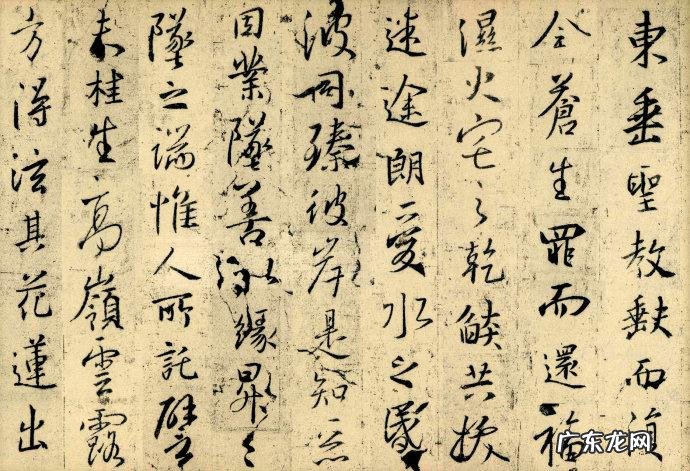 東垂聖教缺而復
全蒼生罪而還福
濕火宅之乾燄共拔
迷途朗愛水之昏
波同臻彼岸是知惡
因業墜善以緣昇々
墜之端惟人所託譬
夫桂生高嶺雲露
方得泫其花蓮出
广东龙网